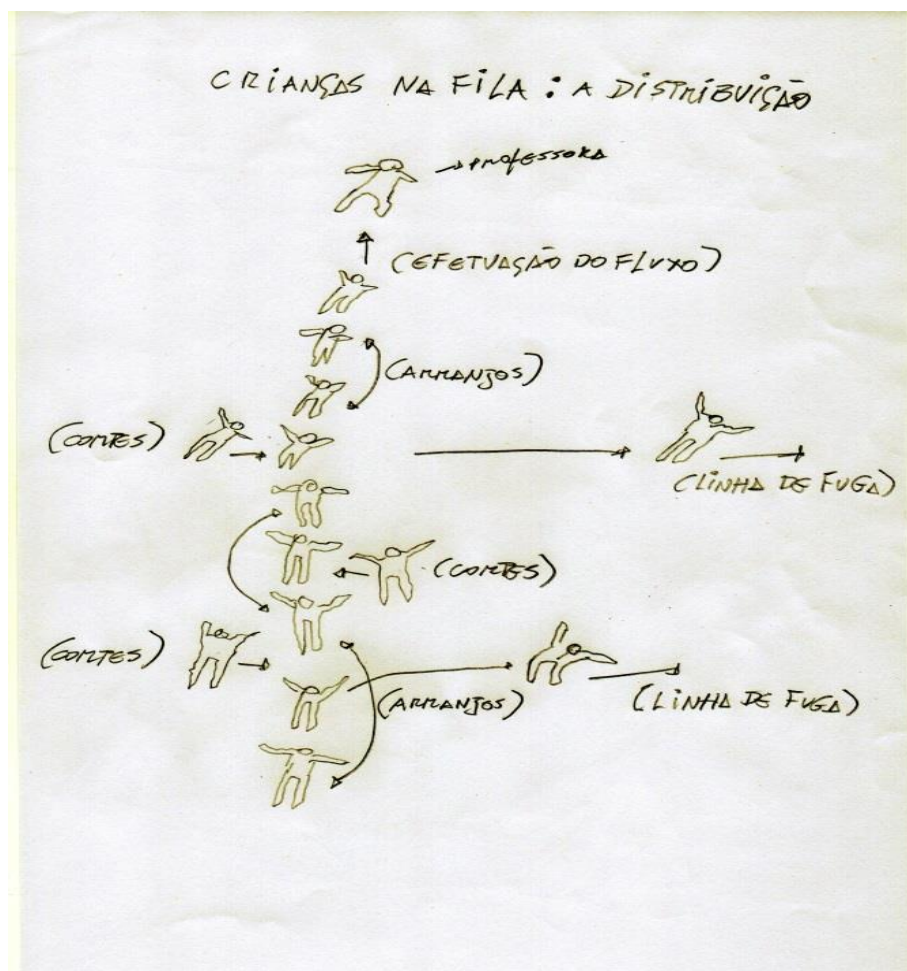 CRIANÇAS NA FILA : A DISTRIBUIÇÃO
→ PROFESSORA
(EFETUAÇÃO DO FLUXO)
(ARRANJOS)
(CORTES)
(LINHA DE FUGA)
(CORTES)
(CORTES)
(ARRANJOS)
(LINHA DE FUGA)